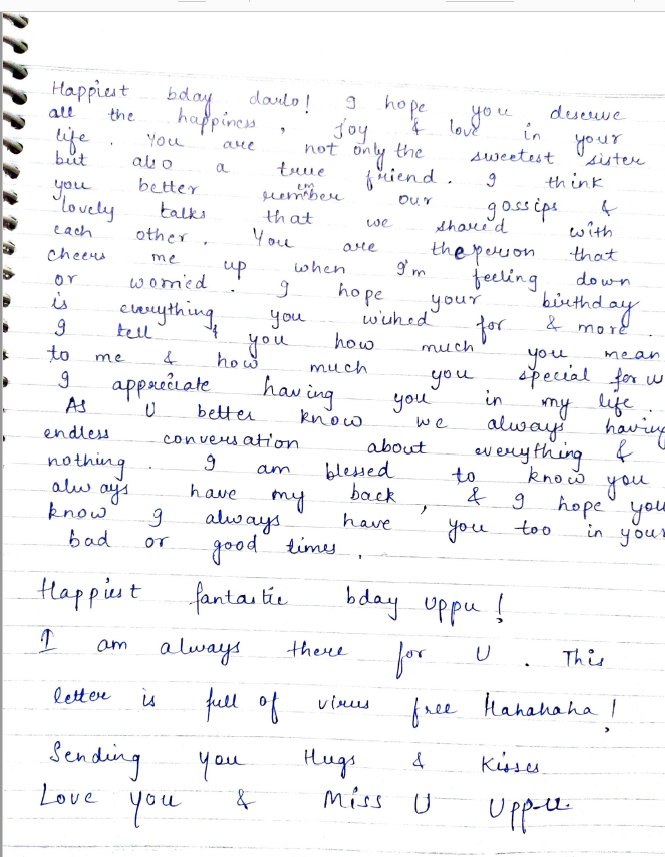 Happiest bday darlo! I hope you deserve
all the happiness, joy & love in your
life. You are not only the sweetest sister
but also a true friend. I think
you better remember our gossips &
lovely talks that we shared with
each other. You are the person that
cheers me up when I'm feeling down
or worried. I hope your birthday
is everything you wished for & more.
I tell you how much you mean
to me & how much you special for
I appreciate having you in my life.
As U better know we always having
endless conversation about everything &
nothing. I am blessed to know you
always have my back, & I hope you
know I always have you too in your
bad or good times.
Happiest fantastic bday Uppu!
I am always there for U. This
letter is full of virus free Hahahaha!
Sending you Hugs & Kisses
Love you & Miss U Uppu.